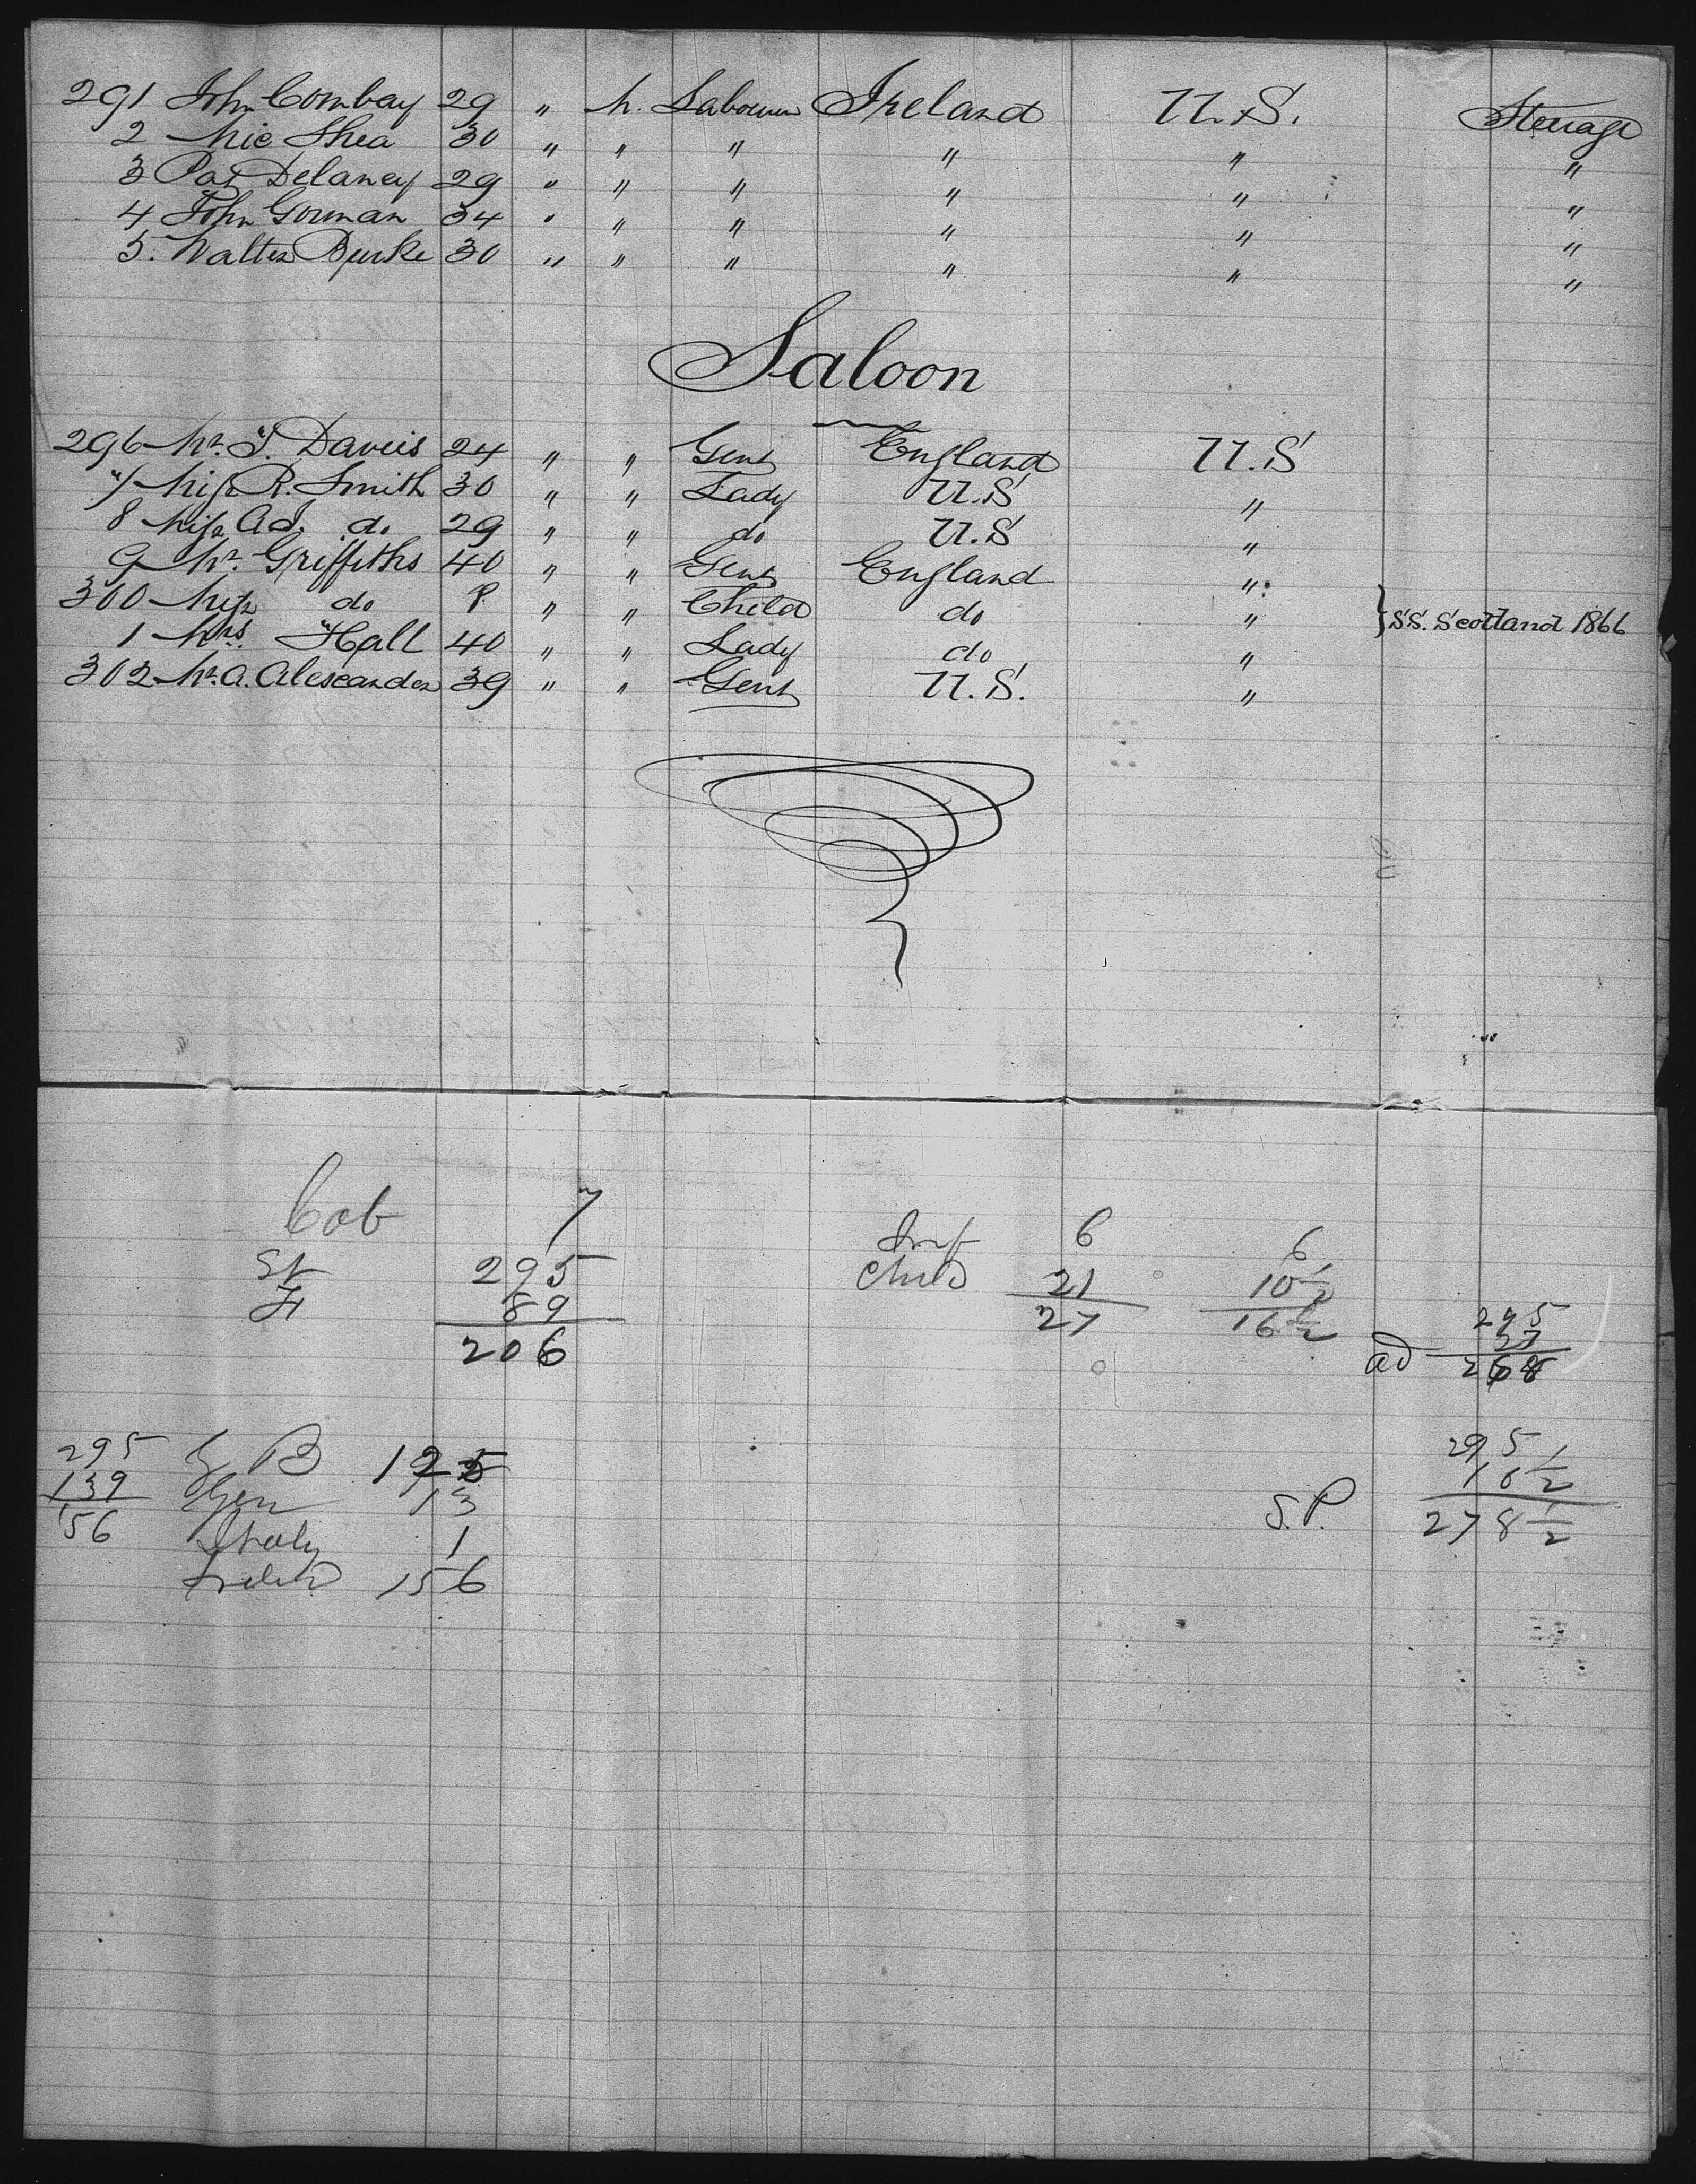 291 John Combay 29 " M. Labourer Ireland U.S. Steerage
2 Mic Shea 30 " " " " " "
3 Pat Delaney 29 " " " " " "
4 John Gorman 34 " " " " " "
5. Walter Burke 30 " " " " " "
Saloon
296 Mr. J. Davies 24 " " Gent England U.S
7 Miss R. Smith 30 " " Lady U.S "
8 Miss Ad. do 29 " " do U.S "
9 Mr. Griffiths 40 " " Gent England "
300 Miss do 8 " " Child do "
1 Mrs. Hall 40 " " Lady do " } S.S. Scotland 1866
302 Mr. A. Alexander 39 " " Gent U.S. "
Cab 7
St 295
F 89
206
Inf 6 6
Child 21 10 1/2
27 16 1/2
295
27
ad 268
295 G B 125
139 Ger 13
156 Italy 1
Ireland 156
295
16 1/2
S.P. 278 1/2